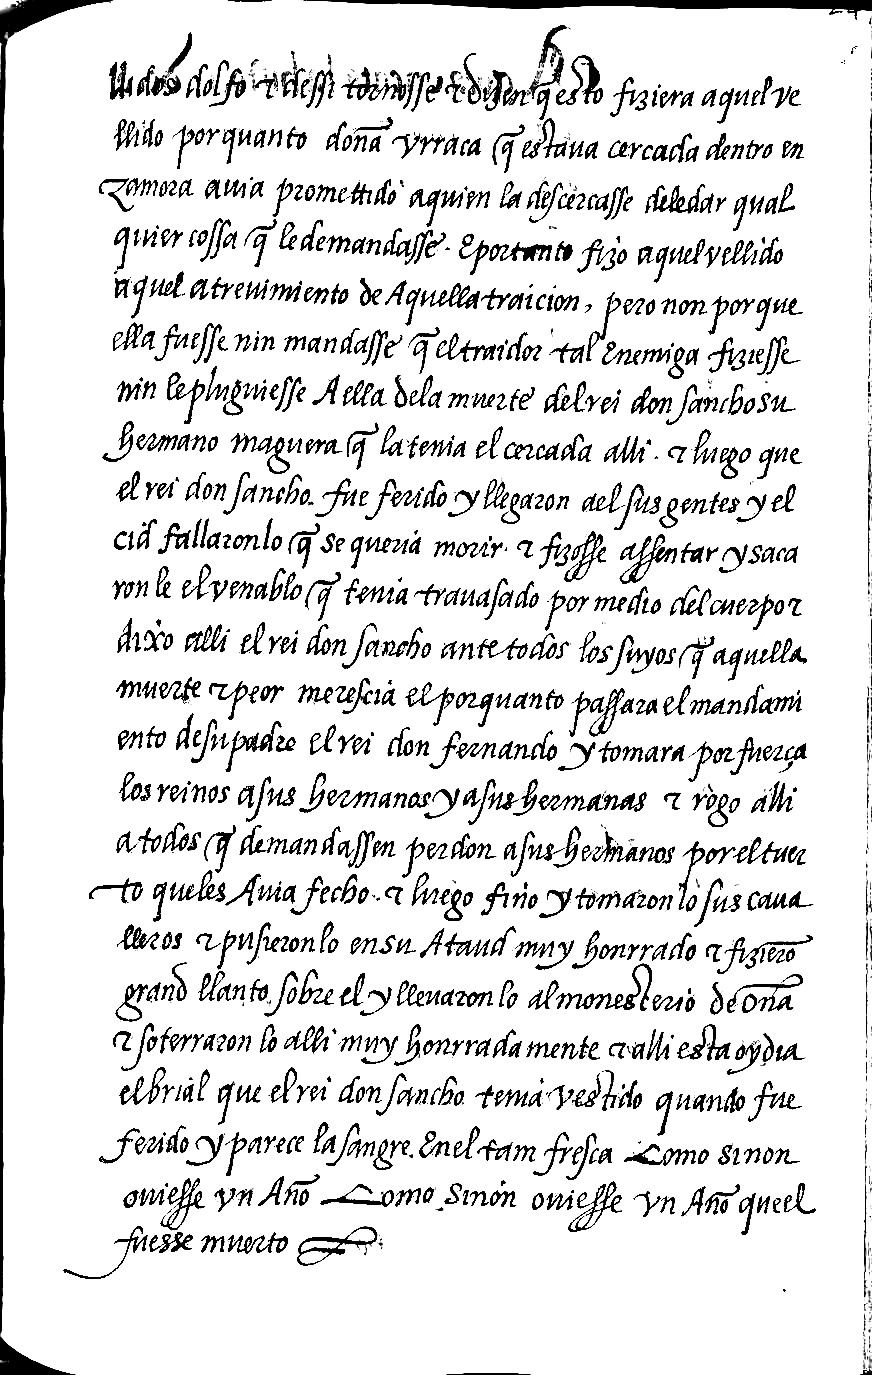 llidos dolfo ⁊ dessi tornosse ⁊ dizen q̃ esto fiziera aquel ve
llido por quanto doña vrraca q̃ estaua cercada dentro en
zamora auia promettido aquien la descercasse deledar qual
quier cossa q̃ le demandasse. E por tanto fizo aquel vellido
aquel atreuimiento de Aquella traicion, pero non por que
ella fuesse nin mandasse q̃ el traidor tal Enemiga fiziesse
nin le pluguiesse A ella dela muerte del rei don sancho su
hermano maguera q̃ la tenia el cercada alli. ⁊ luego que
el rei don sancho. fue ferido y llegaron ael sus gentes y el
cid fallaronlo q̃ se queria morir. ⁊ fizosse assentar y saca
ron le el venablo q̃ tenia trauasado por medio del cuerpo ⁊
dixo alli el rei don sancho ante todos los suyos q̃ aquella
muerte ⁊ peor merescia el porquanto passara el mandami
ento desu padre el rei don fernando y tomara por fuerça
los reinos asus hermanos y asus hermanas ⁊ rogo alli
a todos q̃ demandassen perdon asus hermanos por el tuer
to queles Auia fecho. ⁊ luego fino y tomaron lo sus caua
lleros ⁊ pusieronlo ensu Ataud muy honrrado ⁊ fizierõ
grand llanto sobre el y lleuaron lo al monesterio de Oña
⁊ soterraron lo alli muy honrrada mente ⁊ alli esta oy dia
el brial que el rei don sancho tenia vestido quando fue
ferido y parece la sangre. Enel tam fresca Como sinon
ouiesse vn Año Como sinon ouiesse vn Año que el
fuesse muerto